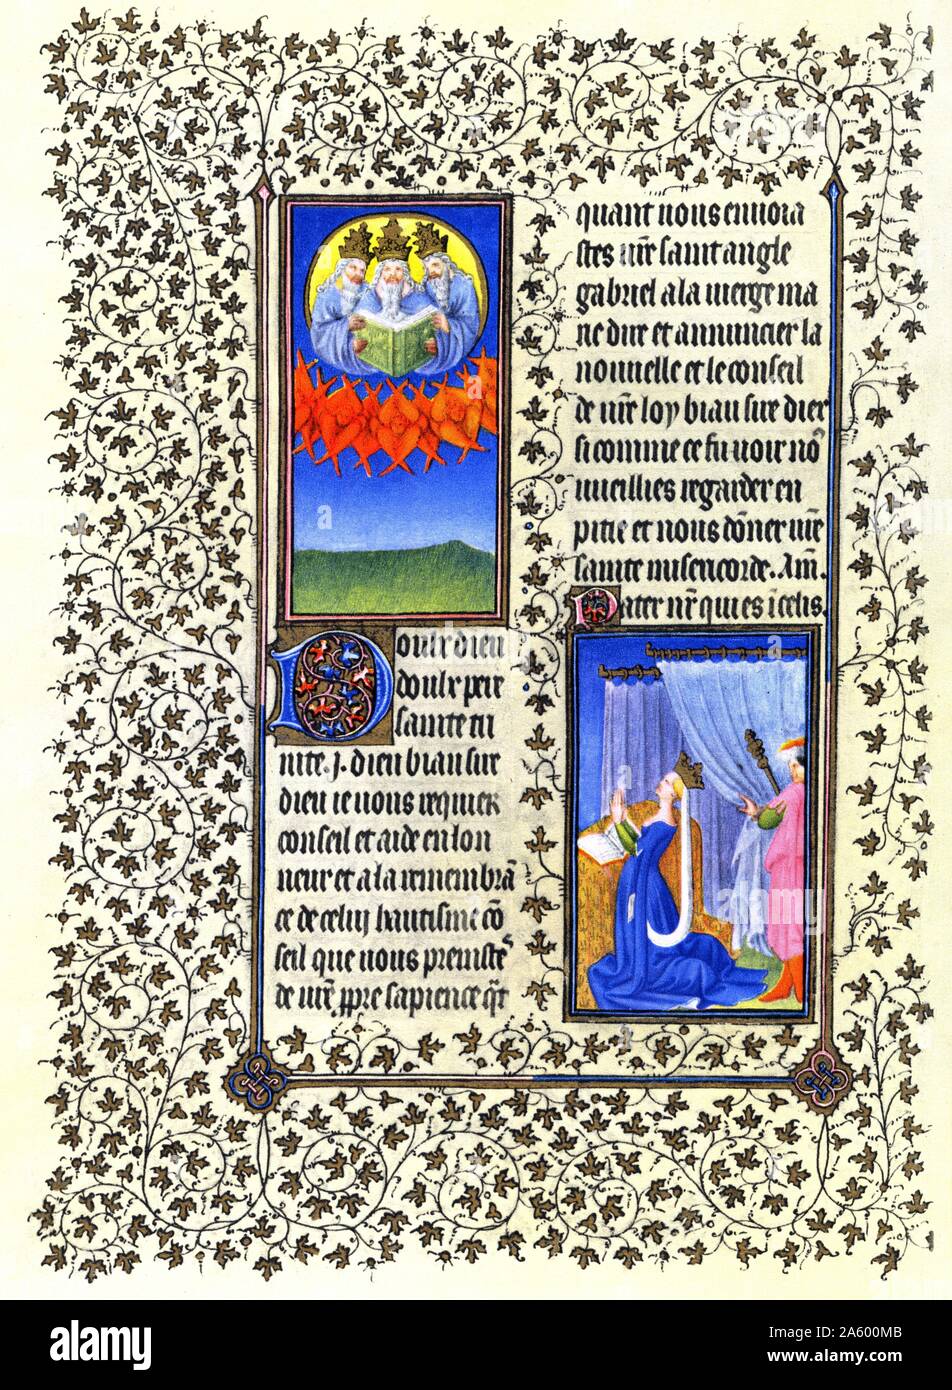 Doulx dieu
doulx pere
sainte tri
nite. j. dieu biau sire
dieu ie vous requier
conseil et aide en lon
neur et a la remembrā
ce de celui hautisme cō
seil que vous preniste͛
de vr̄e ꝓpre sapience qn̄t
quant vous enuoia
stes vr̄e saint angle
gabriel a la vierge ma
rie dire et annuncier la
nouuelle et le conseil
de nr̄e loy biau sire diex
si comme ce fu voir vo᷒
vueillies regarder en
pitie et nous dōner vr̄e
sainte misericorde. Am̄.
Pater nr̄ qui es i celis.
alamy
Image ID: A600MB
www.alamy.com